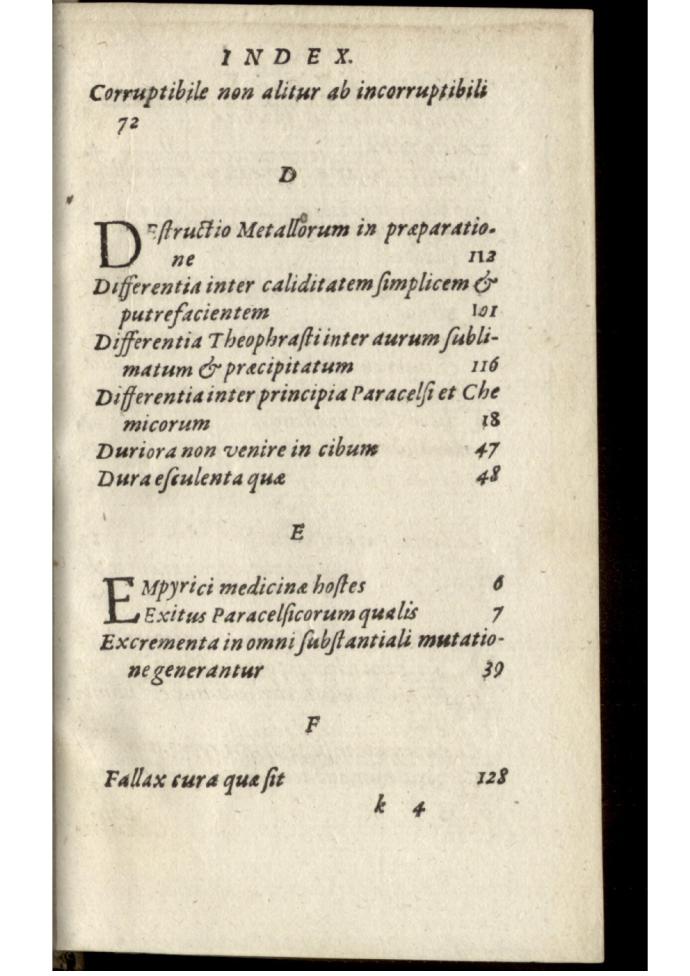 INDEX.
Corruptibile non alitur ab incorruptibili
72
D
DEſtructio Metallorum in præparatio-
ne 112
Differentia inter caliditatem ſimplicem &
putrefacientem 101
Differentia Theophraſti inter aurum ſubli-
matum & præcipitatum 116
Differentia inter principia Paracelſi et Che
micorum 18
Duriora non venire in cibum 47
Dura eſculenta quæ 48
E
EMpyrici medicinæ hoſtes 6
Exitus Paracelſicorum qualis 7
Excrementa in omni ſubſtantiali mutatio-
ne generantur 39
F
Fallax cura quæ ſit 128
k 4